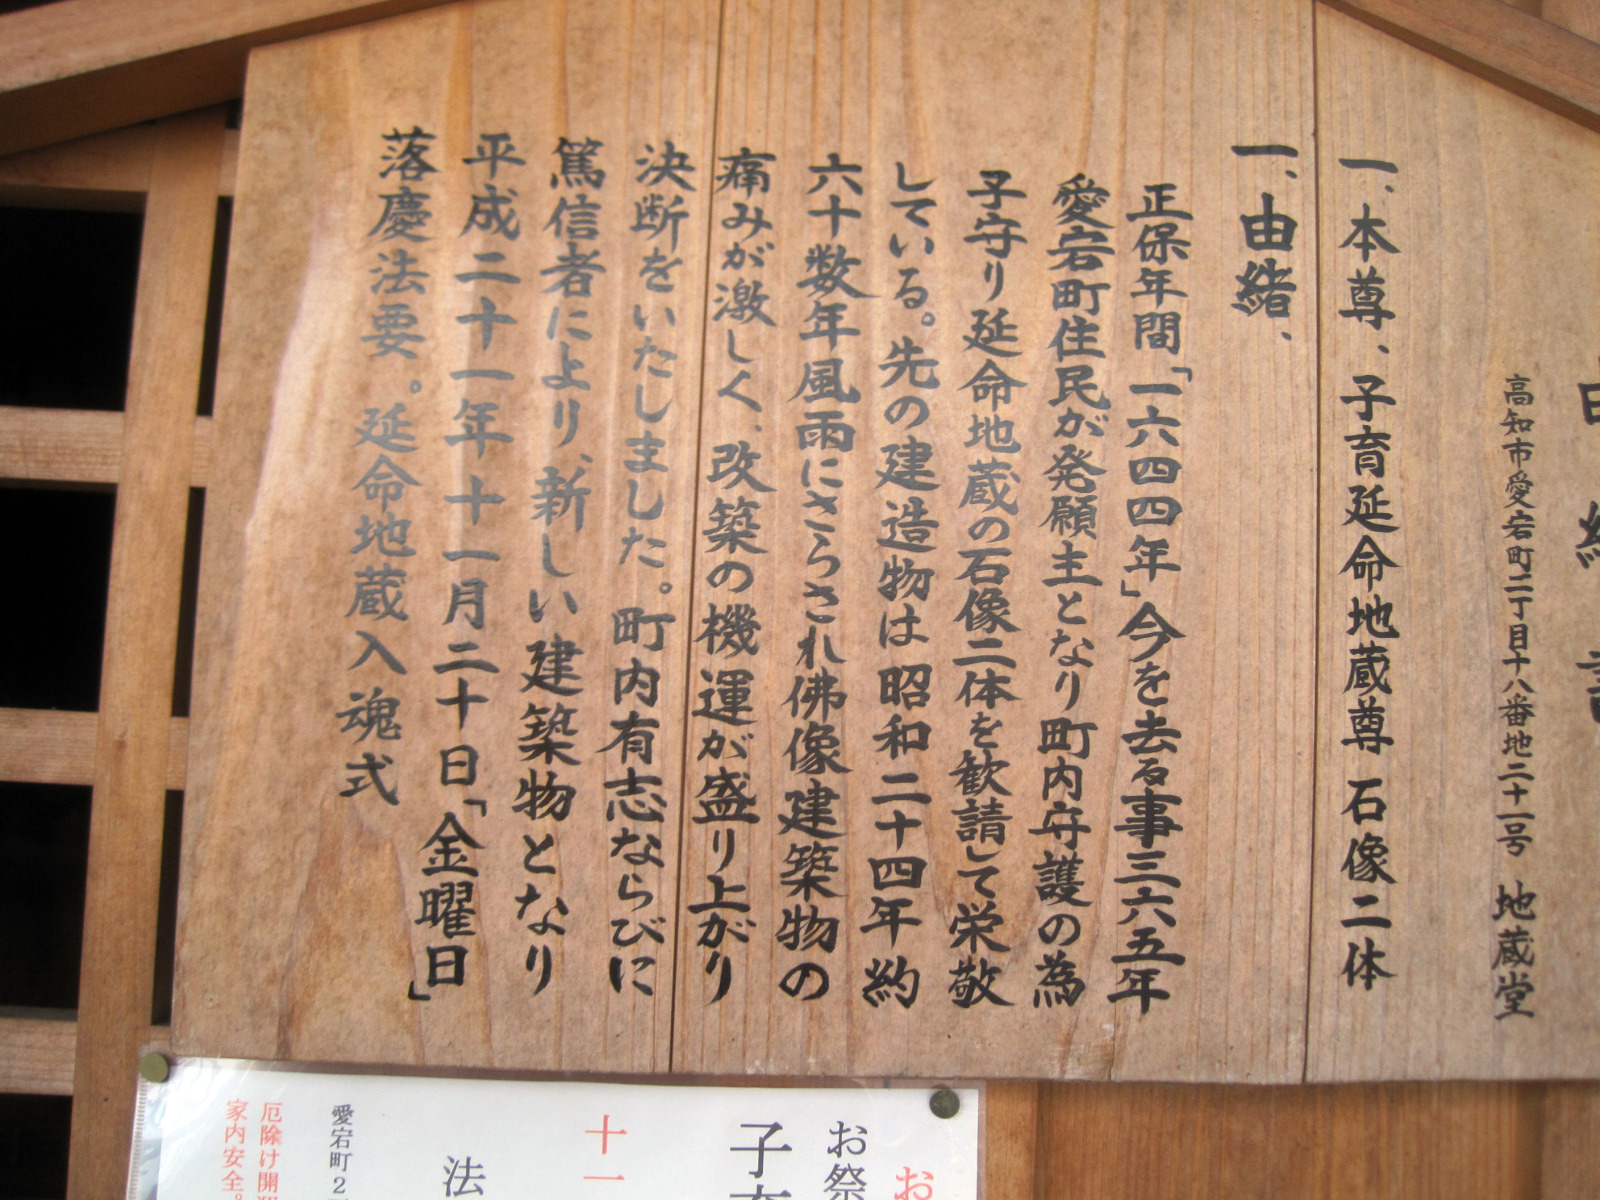 高知市愛宕町二丁目十八番地二十一号 地蔵堂
一、本尊、子育延命地蔵尊 石像二体
一、由緒、
正保年間「一六四四年」今を去る事三六五年
愛宕町住民が発願主となり町内守護の為
子守り延命地蔵の石像二体を歓請して栄敬
している。先の建造物は昭和二十四年約
六十数年風雨にさらされ佛像建築物の
痛みが激しく、改築の機運が盛り上がり
決断をいたしました。町内有志ならびに
篤信者により、新しい建築物となり
平成二十一年十一月二十日「金曜日」
落慶法要。延命地蔵入魂式
お
お祭
子
十一
法
愛宕町2
厄除け開
家内安全。